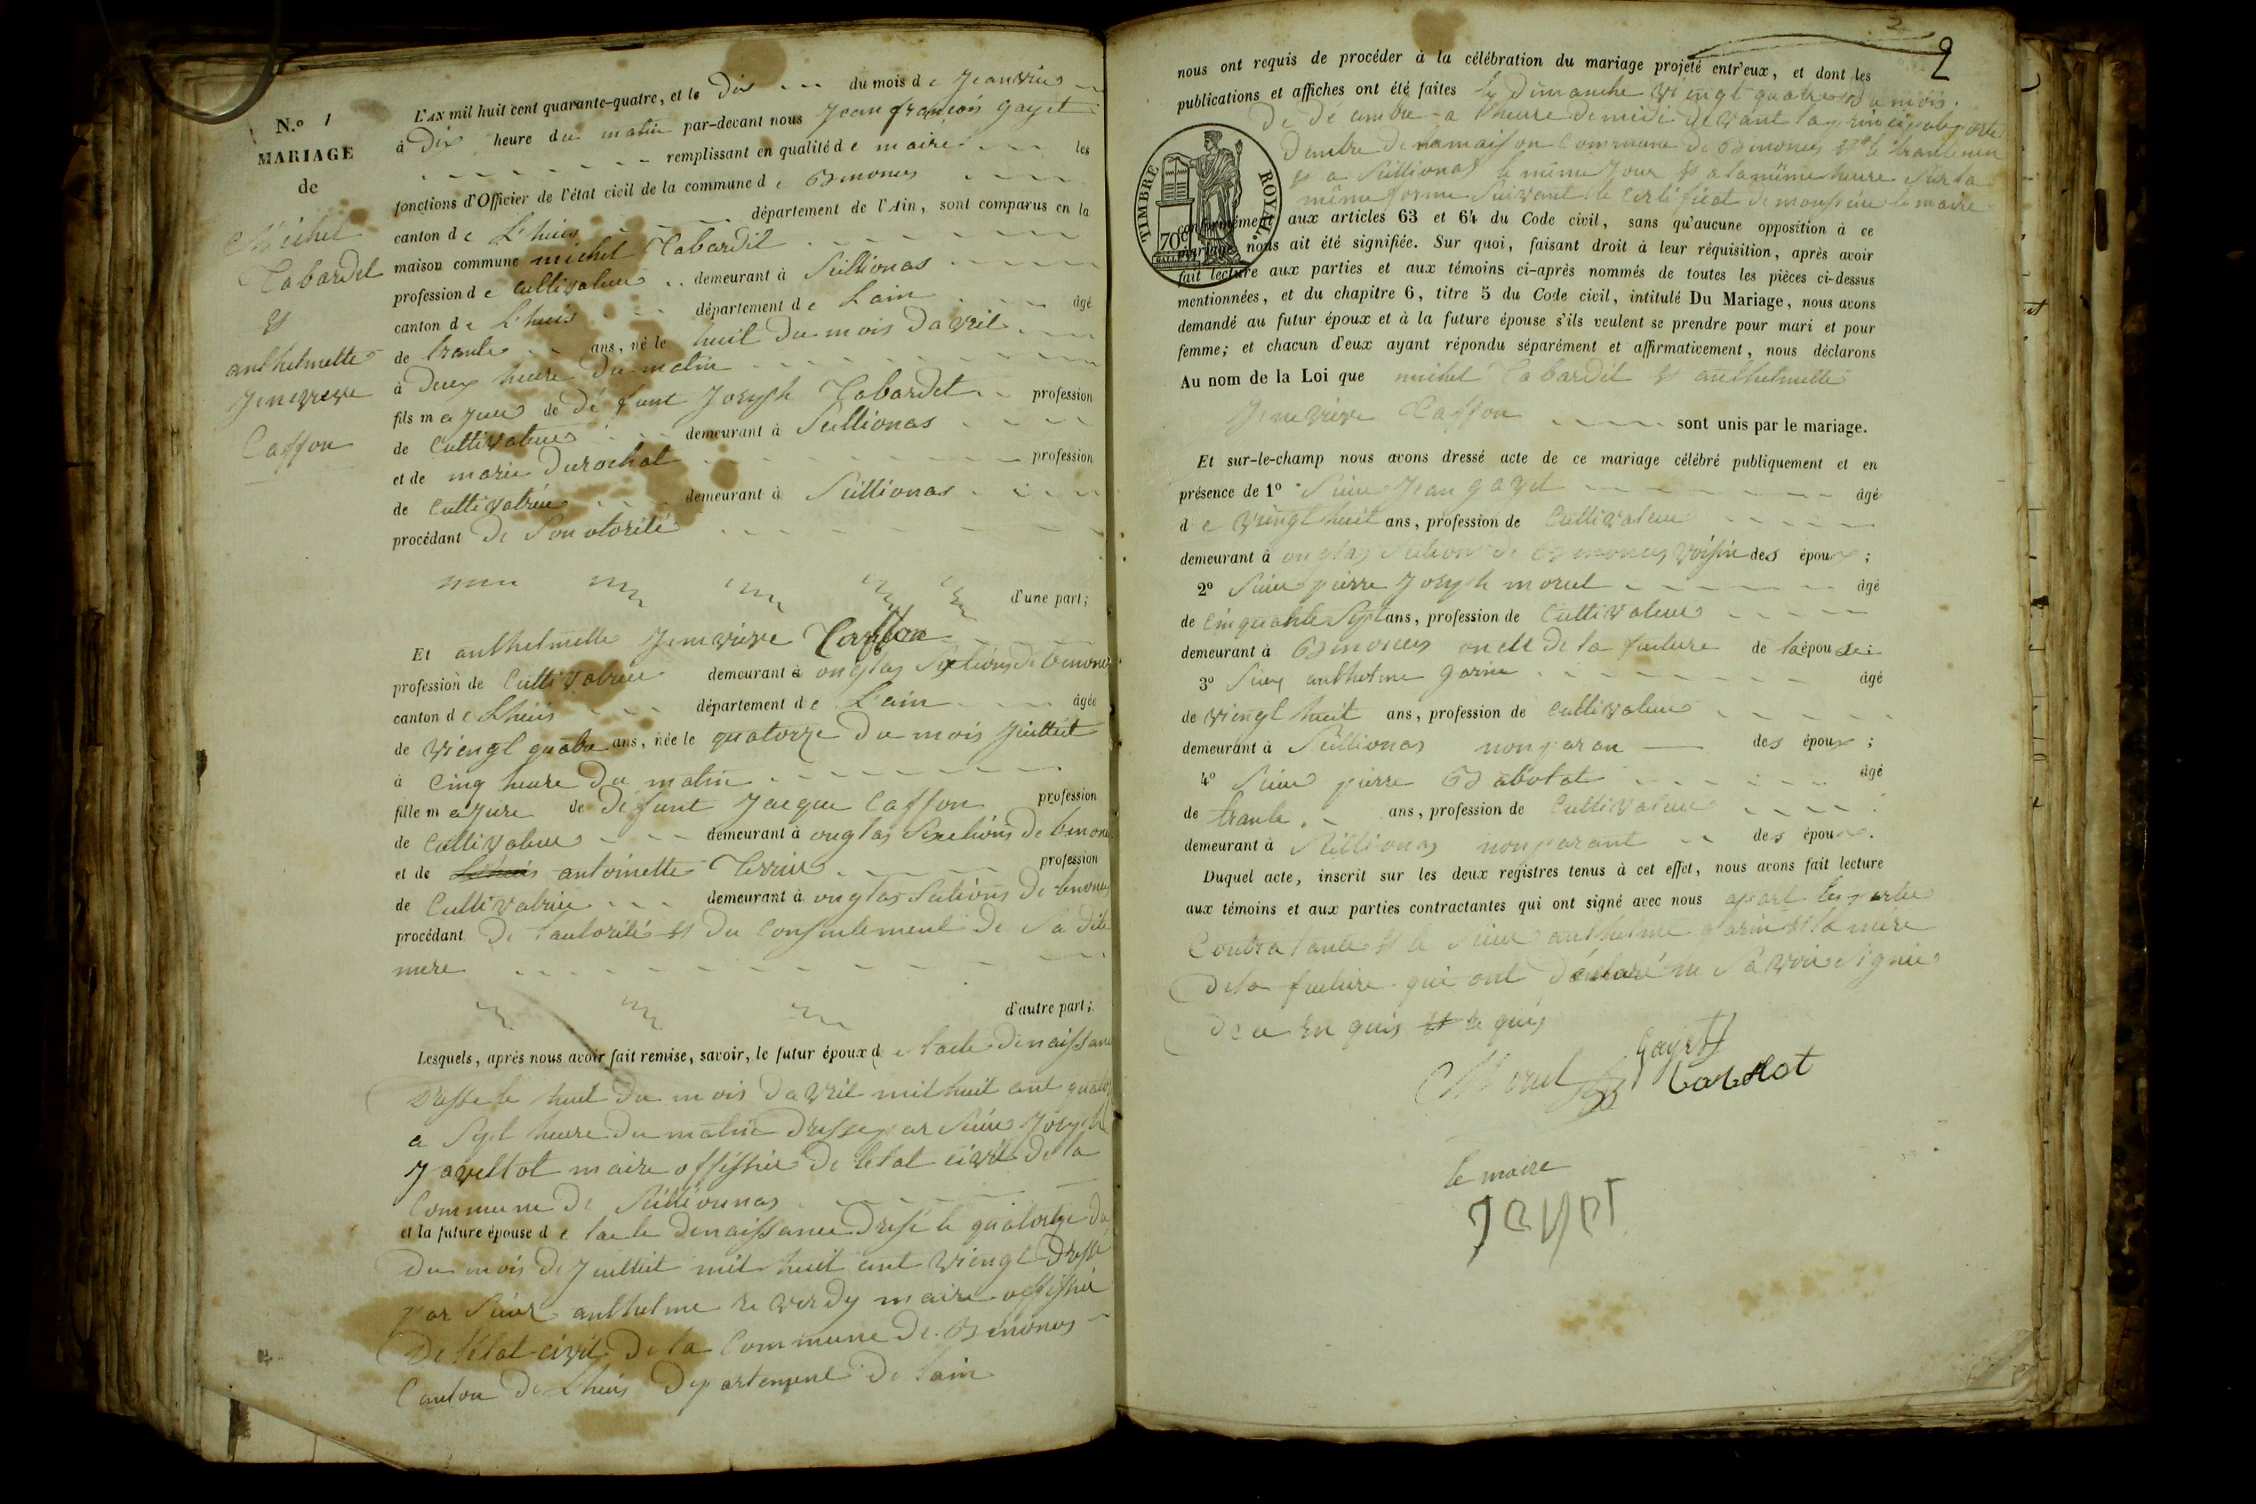 N.o 1
MARIAGE
de
Michel
Cabardet
et
anthelmette
Jenevieve
Caffon
L'AN mil huit cent quarante-quatre, et le Dix du mois de Jeanvier
à Dix heure du matin par-devant nous Jean francois gayet
remplissant en qualité de maire les
fonctions d'Officier de l'état civil de la commune de Benonces
canton de Lhuis département de l'Ain, sont comparus en la
maison commune michel Cabardet
profession de Cultivateur demeurant à Seillionas
canton de Lhuis département de Lain âgé
de trante ans, né le huit du mois Davril
à Deux heure Du matin
fils majeur de Défunt Joseph Cabardet profession
de Cultivateur demeurant à Seillionas
et de marie Durochat profession
de Cultivatrice demeurant à Seillionas
procédant De Son otorité
d'une part;
Et anthelmette Jenevieve Caffon
profession de Cultivatrice demeurant à onglas Sections de benonce
canton de Lhuis département de Lain âgée
de viengt quatre ans, née le quatorze du mois Juillet
à Cinq heure Du matin
fille majure de Défunt Jacque Caffon profession
de Cultivateur demeurant à onglas Sections De benonce
et de antoinette Terrier profession
de Cultivatrice demeurant à onglas Sections De benonces
procédant De l'autorité et Du Consentement De Sa dite
mere
d'autre part;
Lesquels, après nous avoir fait remise, savoir, le futur époux de lacte Denaissance
Dressé le huit Du mois Davril mil huit cent quatorze
a Sept heure Du matin Dressé par Sieur Joseph
Javellot maire offissier De letat civil De la
Commune De Seillionnas
et la future épouse de lacte Denaissance Dresé le quatorze Du
Du mois De Juillet mil huit cent viengt Dressé
par Sieur anthelme reverdy maire offissier
De létat civil De la Commune De Benonces
Canton De Lhuis Departement De lain
2
2
nous ont requis de procéder à la célébration du mariage projeté entr'eux, et dont les
publications et affiches ont été faites le Dimanche viengt quatre Du mois
De Décembre a lheure De midi Devant la principale porte
Dentre De la maison Commune De Benonces et le trante un
et a Seillionas le même Jour et a la même heure Sur la
même forme Suivant le Certificat de monsieur le maire
TIMBRE ROYAL
70c
conformément aux articles 63 et 64 du Code civil, sans qu'aucune opposition à ce
mariage nous ait été signifiée. Sur quoi, faisant droit à leur réquisition, après avoir
fait lecture aux parties et aux témoins ci-après nommés de toutes les pièces ci-dessus
mentionnées, et du chapitre 6, titre 5 du Code civil, intitulé Du Mariage, nous avons
demandé au futur époux et à la future épouse s'ils veulent se prendre pour mari et pour
femme; et chacun d'eux ayant répondu séparément et affirmativement, nous déclarons
Au nom de la Loi que michel Cabardet et anthelmette
Jenevieve Caffon sont unis par le mariage.
Et sur-le-champ nous avons dressé acte de ce mariage célébré publiquement et en
présence de 1o Sieur Jean gayet âgé
de viengt huit ans, profession de Cultivateur
demeurant à onglas Section De Benonces voisin des époux;
2o Sieur pierre Joseph morel âgé
de Cinquante Sept ans, profession de Cultivateur
demeurant à Benonces oncle De la fueture de laépouse
3o Sieur anthelme garin âgé
de viengt huit ans, profession de Cultivateur
demeurant à Seillionas non paran des époux;
4o Sieur pierre Babolat âgé
de trante ans, profession de Cultivateur
demeurant à Seillionas non parant des époux.
Duquel acte, inscrit sur les deux registres tenus à cet effet, nous avons fait lecture
aux témoins et aux parties contractantes qui ont signé avec nous apart les partie
Contratante et le Sieur anthelme garin et la mere
De la fueture qui ont Déclaré ne Savoir Signer
De ce Enquis et requis
Gayet
Morel
babolat
le maire
Jayet